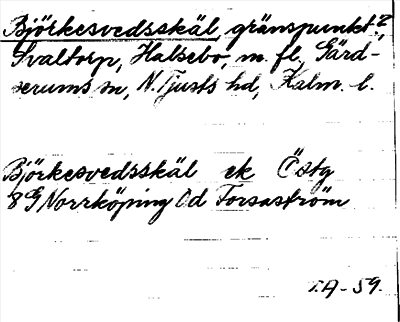 Björkesvedsskäl, gränspunkt?
Svaltorp, Halsebo, m. fl., Gärd-
serums sn, N. Tjusts hd, Kalm. l.
Björkesvedsskäl ek Östg
8G Norrköping Od Forsaström
T.A-59.